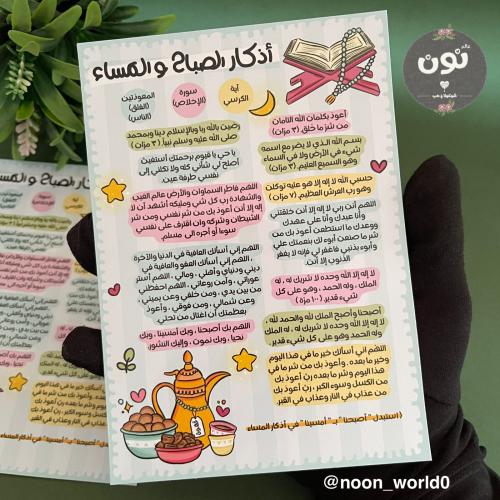 أذكار الصباح و المساء
آية
الكرسي
سورة
(الإخلاص)
المعوذتين
(الفلق)
(الناس)
أعوذ بكلمات الله التامات
من شر ما خلق. (٣ مرات)
بسم الله الذي لا يضر مع اسمه
شيء في الأرض ولا في السماء
وهو السميع العليم. (٣ مرات)
حسبي الله لا إله إلا هو عليه توكلت
وهو رب العرش العظيم. (٧ مرات)
اللهم أنت ربي لا إله إلا أنت خلقتني
وأنا عبدك وأنا على عهدك
ووعدك ما استطعت أعوذ بك من
شر ما صنعت أبوء لك بنعمتك علي
وأبوء بذنبي فاغفر لي فإنه لا يغفر
الذنوب إلا أنت.
لا إله إلا الله وحده لا شريك له ، له
الملك ، وله الحمد ، وهو على كل
شيء قدير. (١٠٠ مرة)
أصبحنا وأصبح الملك لله والحمد لله ،
لا إله إلا الله وحده لا شريك له ، له الملك
وله الحمد وهو على كل شيء قدير.
اللهم إني أسألك خير ما في هذا اليوم
وخير ما بعده ، وأعوذ بك من شر ما في
هذا اليوم وشر ما بعده رب أعوذ بك
من الكسل وسوء الكبر ، رب أعوذ بك
من عذاب في النار وعذاب في القبر.
رضيت بالله ربا وبالإسلام دينا وبمحمد
صلى الله عليه وسلم نبياً. (٣ مرات)
يا حي يا قيوم برحمتك أستغيث
أصلح لي شأني كله ولا تكلني إلى
نفسي طرفة عين.
اللهم فاطر السماوات والأرض عالم الغيب
والشهادة رب كل شيء ومليكه أشهد أن لا
إله إلا أنت أعوذ بك من شر نفسي ومن شر
الشيطان وشركه وأن اقترف على نفسي
سوءا أو أجره الى مسلم.
اللهم إني أسألك العافية في الدنيا والآخرة
، اللهم إني أسألك العفو والعافية في
ديني ودنياي وأهلي ، ومالي ، اللهم أستر
عوراتي ، وآمن روعاتي ، اللهم احفظني
من بين يدي ، ومن خلفي وعن يميني ،
وعن شمالي ، ومن فوقي ، وأعوذ
بعظمتك أن أغتال من تحتي.
اللهم بك أصبحنا ، وبك أمسينا ، وبك
نحيا ، وبك نموت ، وإليك النشور.
(استبدل " أصبحنا " بـ " أمسينا " في أذكار المساء)
عالم
نون
@noon_world0